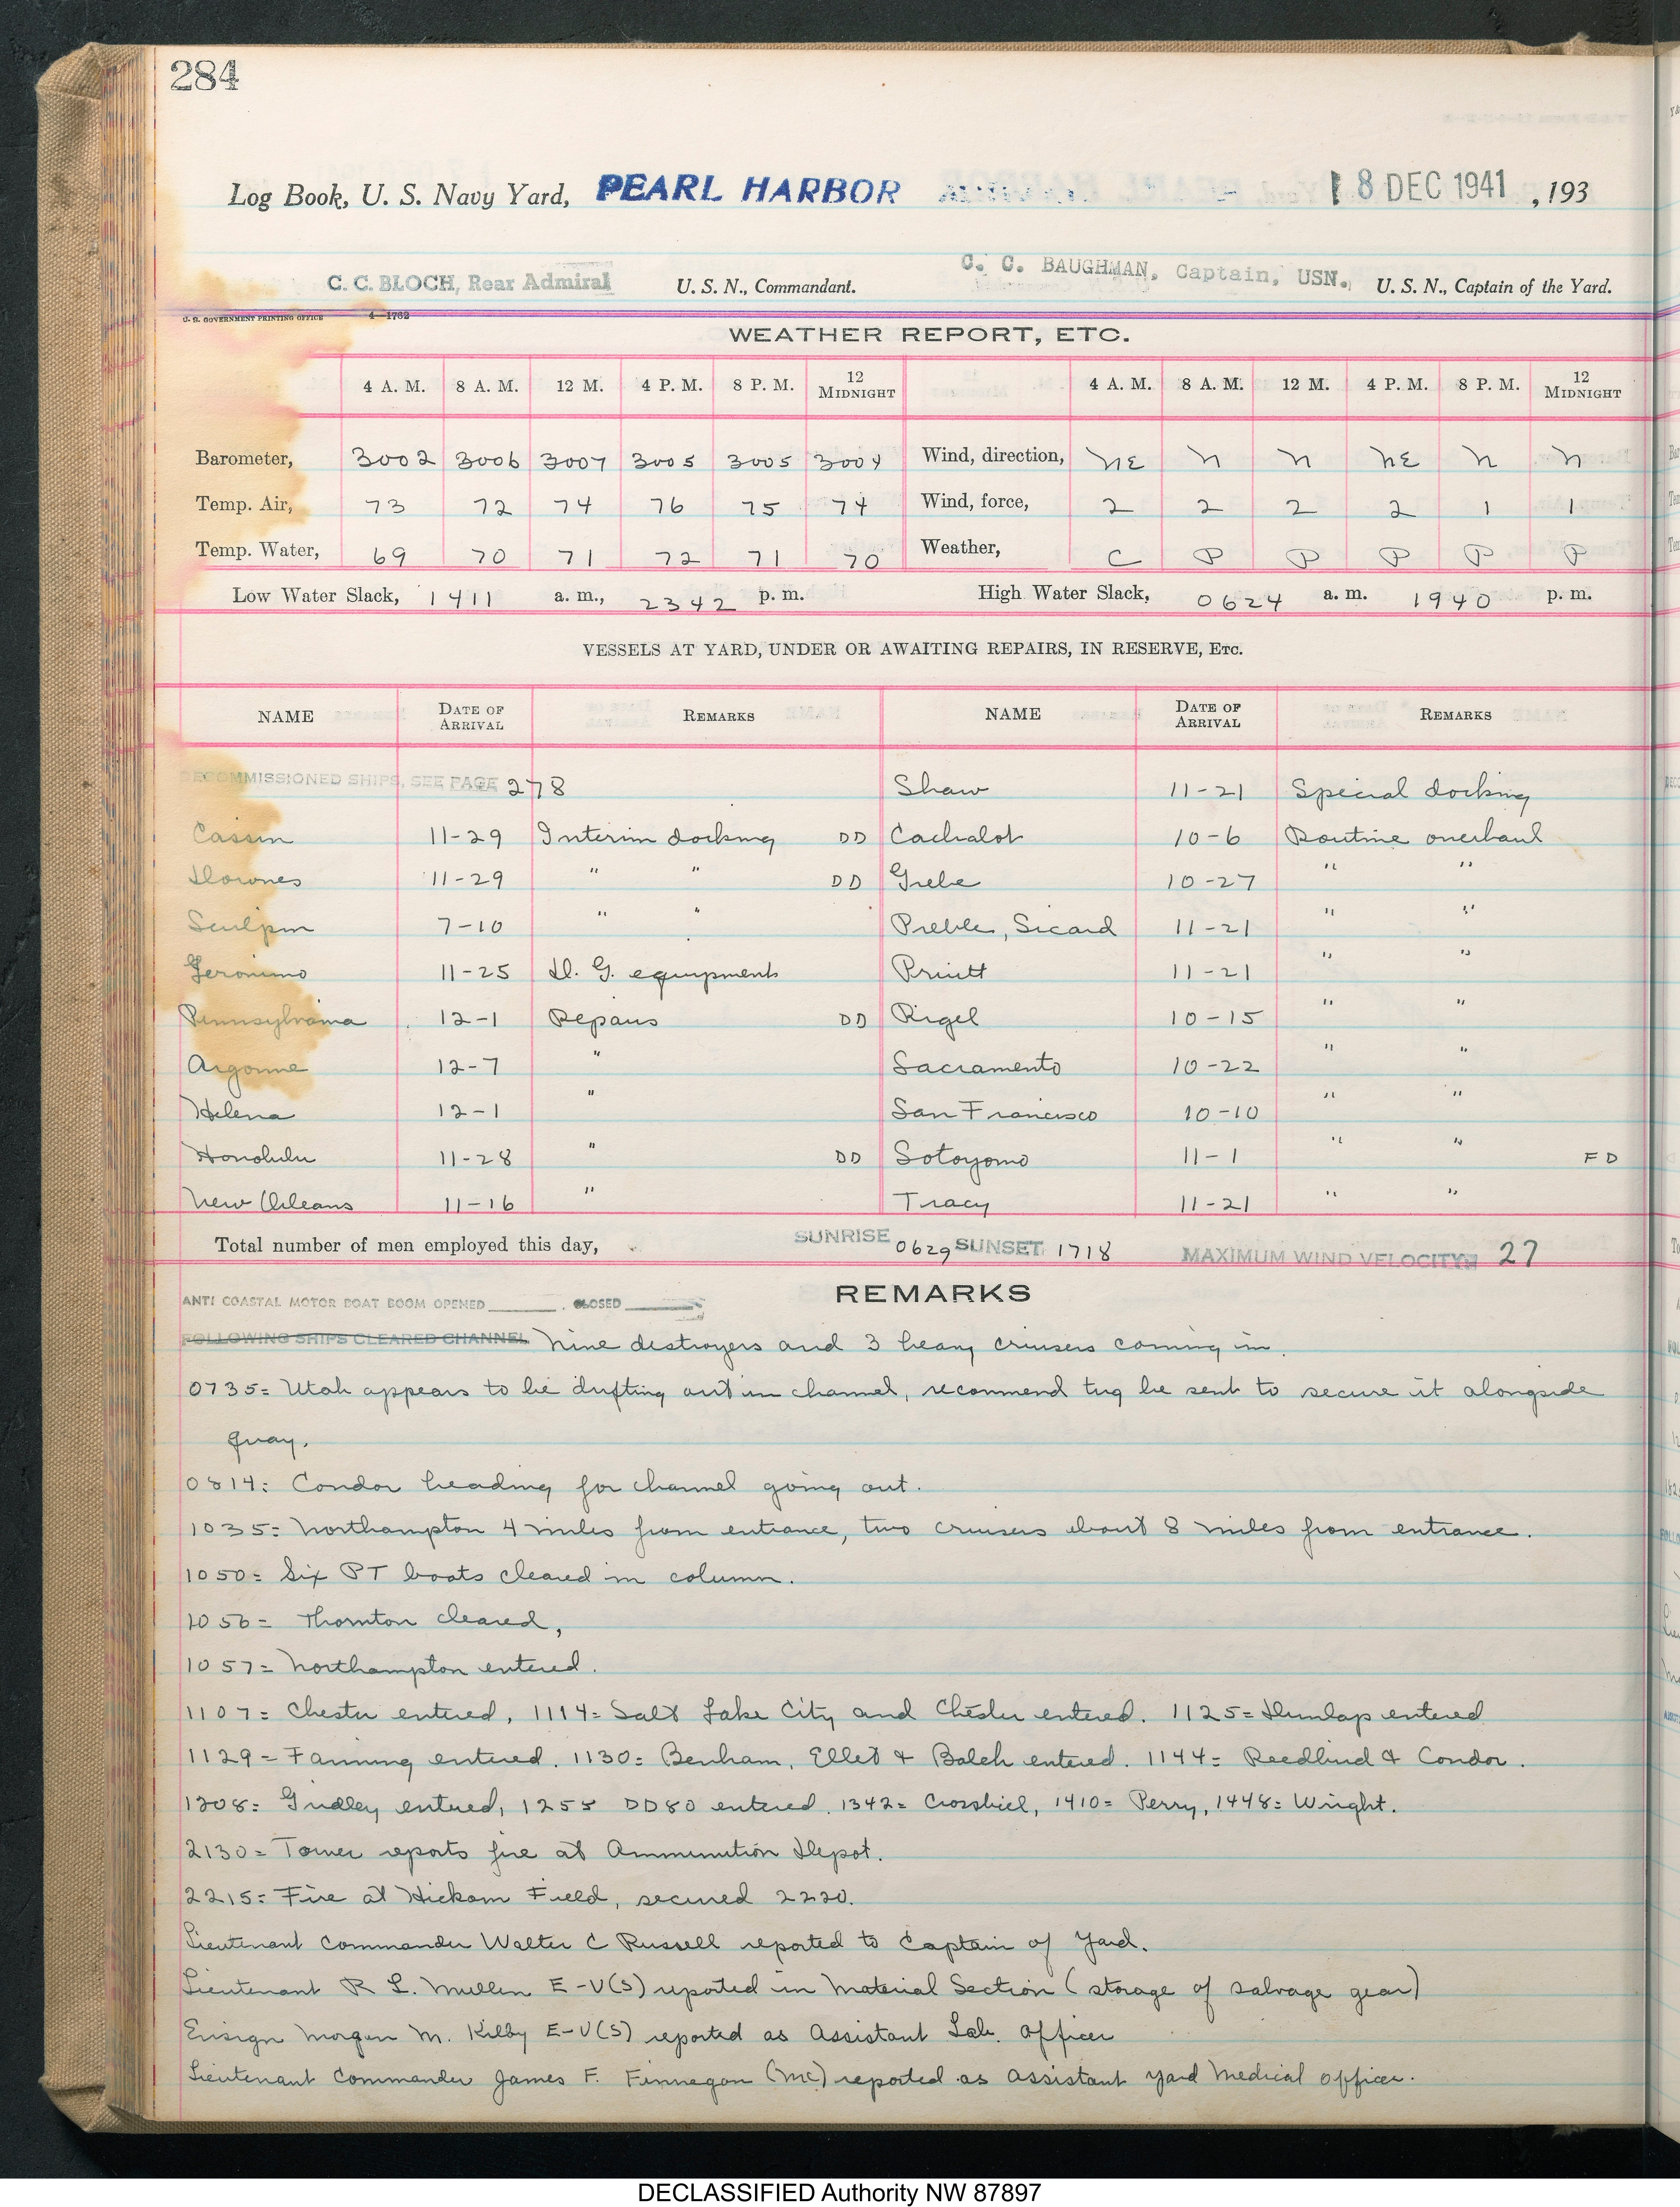 284
Log Book, U. S. Navy Yard, PEARL HARBOR 18 DEC 1941 , 193
C. C. BLOCH, Rear Admiral U. S. N., Commandant. C. C. BAUGHMAN, Captain, USN., U. S. N., Captain of the Yard.
U. S. GOVERNMENT PRINTING OFFICE 4—1762
WEATHER REPORT, ETC.
4 A. M. 8 A. M. 12 M. 4 P. M. 8 P. M. 12 MIDNIGHT 4 A. M. 8 A. M. 12 M. 4 P. M. 8 P. M. 12 MIDNIGHT
Barometer, 3002 3006 3007 3005 3005 3004 Wind, direction, NE N N NE N N
Temp. Air, 73 72 74 76 75 74 Wind, force, 2 2 2 2 1 1
Temp. Water, 69 70 71 72 71 70 Weather, C P P P P P
Low Water Slack, 1411 a. m., 2342 p. m. High Water Slack, 0624 a. m. 1940 p. m.
VESSELS AT YARD, UNDER OR AWAITING REPAIRS, IN RESERVE, ETC.
NAME DATE OF ARRIVAL REMARKS NAME DATE OF ARRIVAL REMARKS
DECOMMISSIONED SHIPS, SEE PAGE 278 Shaw 11-21 Special docking
Cassin 11-29 Interim docking DD Cachalot 10-6 Routine overhaul
Downes 11-29 " " DD Grebe 10-27 " "
Sculpin 7-10 " " Preble, Sicard 11-21 " "
Geronimo 11-25 D. G. equipment Pruitt 11-21 " "
Pennsylvania 12-1 Repairs DD Rigel 10-15 " "
Argonne 12-7 " Sacramento 10-22 " "
Helena 12-1 " San Francisco 10-10 " "
Honolulu 11-28 " DD Sotoyomo 11-1 " " FD
New Orleans 11-16 " Tracy 11-21 " "
Total number of men employed this day, SUNRISE 0629 SUNSET 1718 MAXIMUM WIND VELOCITY 27
ANTI COASTAL MOTOR BOAT BOOM OPENED ______ . CLOSED ______ REMARKS
FOLLOWING SHIPS CLEARED CHANNEL Nine destroyers and 3 heavy cruisers coming in.
0735= Utah appears to be drifting out in channel, recommend tug be sent to secure it alongside
quay.
0814: Condor heading for channel going out.
1035= Northampton 4 miles from entrance, two cruisers about 8 miles from entrance.
1050= Six PT boats cleared in column.
1056= Thornton cleared,
1057= Northampton entered.
1107= Chester entered, 1114= Salt Lake City and Chester entered. 1125= Dunlap entered
1129= Fanning entered. 1130= Benham, Ellet & Balch entered. 1144= Reedbird & Condor.
1208= Gridley entered, 1255 DD80 entered. 1342= Crossbill, 1410= Perry, 1448= Wright.
2130= Tower reports fire at Ammunition Depot.
2215= Fire at Hickam Field, secured 2220.
Lieutenant Commander Walter C Russell reported to Captain of Yard.
Lieutenant R L. Mullen E-V(S) reported in Material Section (storage of salvage gear)
Ensign Morgan M. Kilby E-V(S) reported as Assistant Lab. Officer
Lieutenant Commander James F. Finnegan (MC) reported as Assistant Yard Medical Officer.
DECLASSIFIED Authority NW 87897